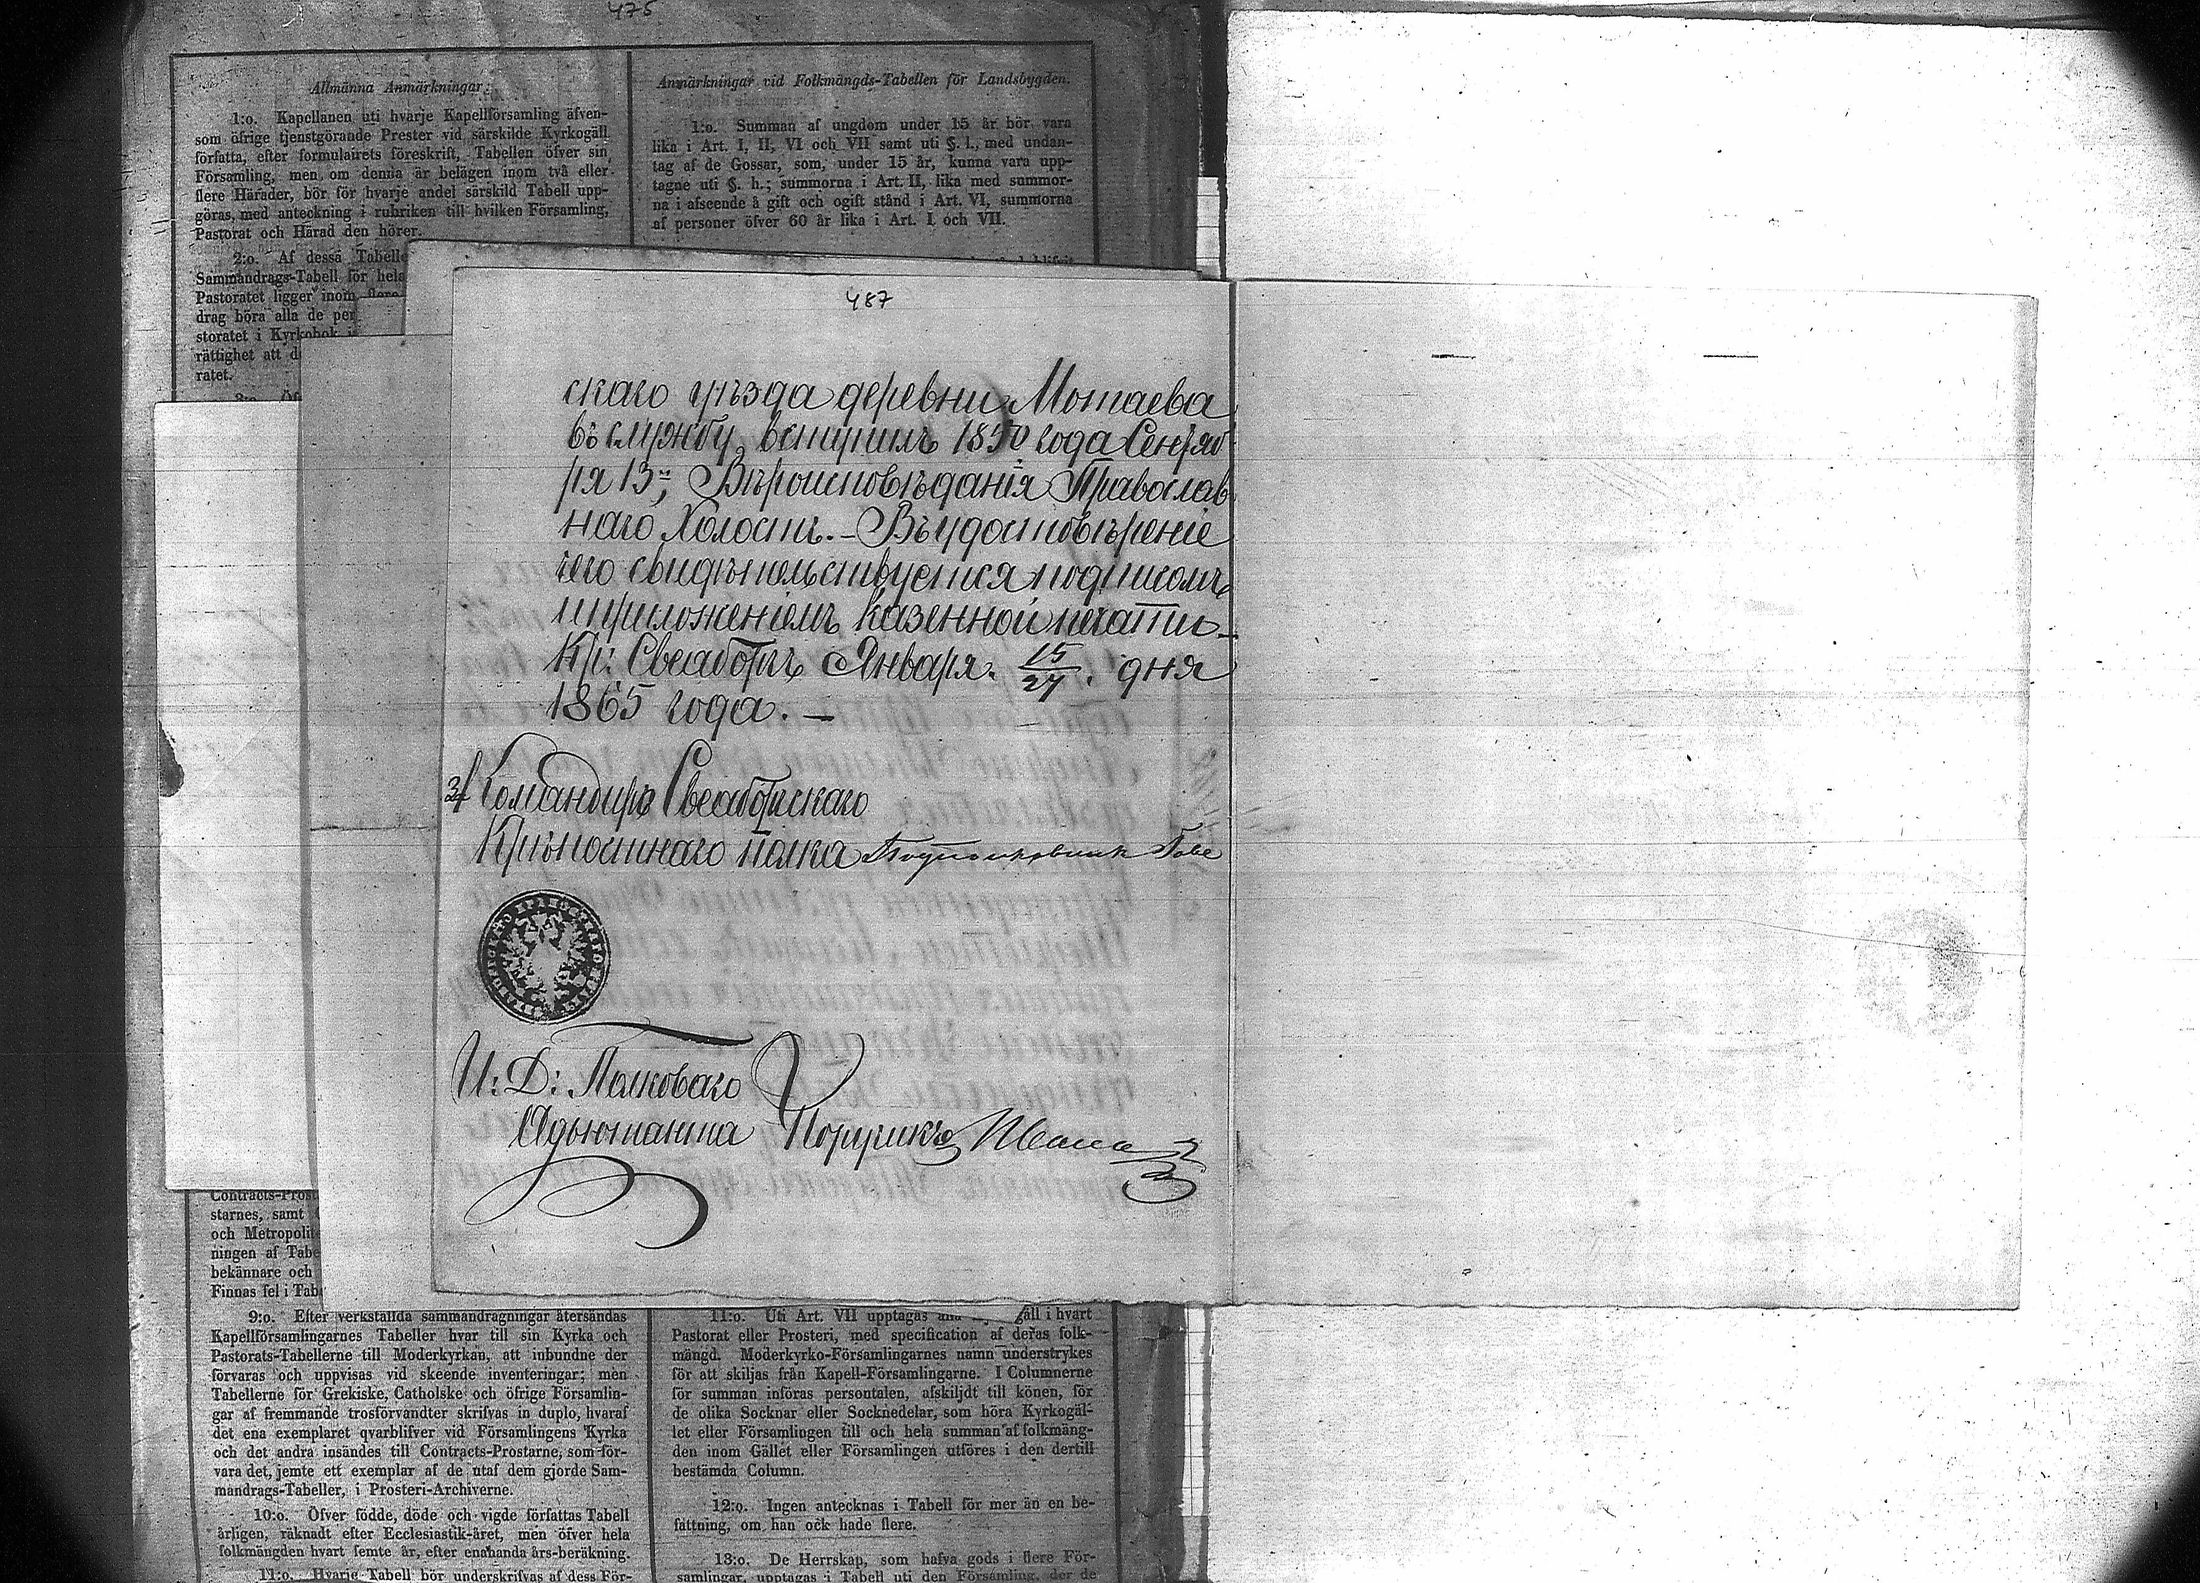 475
Allmänna Anmärkningar.
1:o. Kapellanen uti hvarje Kapellförsamling äfven-
som öfrige tjenstgörande Prester vid särskilde Kyrkogäll
författa, efter formulairets föreskrift, Tabellen öfver sin
Församling, men om denna är belägen inom två eller
flere Härader, bör för hvarje andel särskild Tabell upp-
göras, med anteckning i rubriken till hvilken Församling,
Pastorat och Härad den hörer.
2:o. Af dessa Tabelle
Sammandrags-Tabell för hela
Pastoratet ligger inom flere
drag böra alla de per
storatet i Kyrkobok i
rättighet att d
ratet.
Anmärkningar vid Folkmängds-Tabellen för Landsbygden.
1:o. Summan af ungdom under 15 år bör vara
lika i Art. I, II, VI och VII samt uti §. l., med undan-
tag af de Gossar, som, under 15 år, kunna vara upp-
tagne uti §. h.; summorna i Art. II, lika med summor-
na i afseende å gift och ogift stånd i Art. VI, summorna
af personer öfver 60 år lika i Art. I och VII.
487
скаго уѣзда деревни Мотаева
въ службу вступилъ 1850 года Сентяб
ря 13го, Вѣроисповѣданія Православ
наго Холостъ. – Въ удостовѣреніе
чего свидѣтельствуется подписомъ
и приложеніемъ казенной печати –
Кр: Свеаборгъ Января 15/27 дня
1865 года. –
Командиръ Свеаборгскаго
Крѣпостнаго полка Подполковникъ
И: Д: Полковаго
Адъютанта Поручикъ
Contracts-Prost
starnes, samt
och Metropolit
ningen af Tabe
bekännare och
Finnas fel i Tab
9:o. Efter verkställda sammandragningar återsändas
Kapellförsamlingarnes Tabeller hvar till sin Kyrka och
Pastorats-Tabellerne till Moderkyrkan, att inbundne der
förvaras och uppvisas vid skeende inventeringar; men
Tabellerne för Grekiske, Catholske och öfrige Församlin-
gar af fremmande trosförvandter skrifvas in duplo, hvaraf
det ena exemplaret qvarblifver vid Församlingens Kyrka
och det andra insändes till Contracts-Prostarne, som för-
vara det, jemte ett exemplar af de utaf dem gjorde Sam-
mandrags-Tabeller, i Prosteri-Archiverne.
10:o. Öfver födde, döde och vigde författas Tabell
årligen, räknadt efter Ecclesiastik-året, men öfver hela
folkmängden hvart femte år, efter enahanda års-beräkning.
11:o. Hvarje Tabell bör underskrifvas af dess För-
11:o. Uti Art. VII upptagas alla gäll i hvart
Pastorat eller Prosteri, med specification af deras folk-
mängd. Moderkyrko-Församlingarnes namn understrykes
för att skiljas från Kapell-Församlingarne. I Columnerne
för summan införas persontalen, afskiljdt till könen, för
de olika Socknar eller Socknedelar, som höra Kyrkogäl-
let eller Församlingen till och hela summan af folkmäng-
den inom Gället eller Församlingen utföres i den dertill
bestämda Column.
12:o. Ingen antecknas i Tabell för mer än en be-
fattning, om han ock hade flere.
13:o. De Herrskap, som hafva gods i flere För-
samlingar, upptagas i Tabell uti den Församling, der de